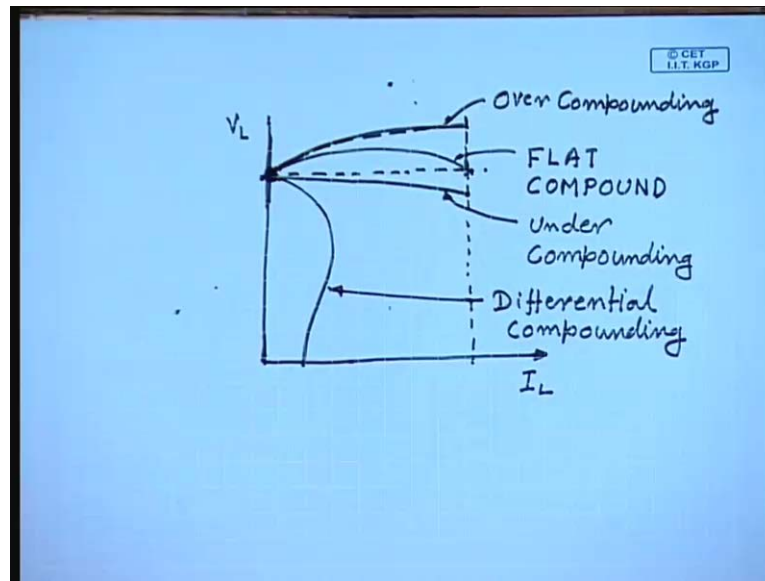 © CET
I.I.T. KGP
Over Compounding
V_L
FLAT
COMPOUND
Under
Compounding
Differential
Compounding
I_L